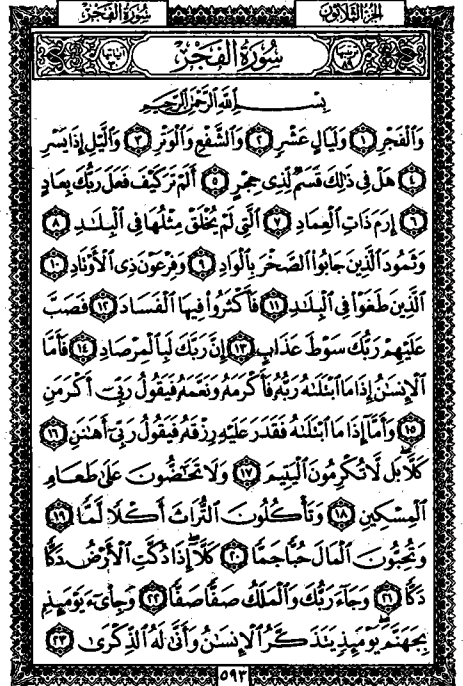 سُورَةُ الفَجْرِ
الجُزْءُ الثَّلَاثُونَ
ترتيبها ٨٩
سُورَةُ الفَجْرِ
آياتها ٣٠
بِسْمِ اللَّهِ الرَّحْمَٰنِ الرَّحِيمِ
وَالْفَجْرِ ١ وَلَيَالٍ عَشْرٍ ٢ وَالشَّفْعِ وَالْوَتْرِ ٣ وَاللَّيْلِ إِذَا يَسْرِ
٤ هَلْ فِي ذَٰلِكَ قَسَمٌ لِّذِي حِجْرٍ ٥ أَلَمْ تَرَ كَيْفَ فَعَلَ رَبُّكَ بِعَادٍ
٦ إِرَمَ ذَاتِ الْعِمَادِ ٧ الَّتِي لَمْ يُخْلَقْ مِثْلُهَا فِي الْبِلَٰدِ ٨
وَثَمُودَ الَّذِينَ جَابُوا الصَّخْرَ بِالْوَادِ ٩ وَفِرْعَوْنَ ذِي الْأَوْتَادِ ١٠
الَّذِينَ طَغَوْا فِي الْبِلَٰدِ ١١ فَأَكْثَرُوا فِيهَا الْفَسَادَ ١٢ فَصَبَّ
عَلَيْهِمْ رَبُّكَ سَوْطَ عَذَابٍ ١٣ إِنَّ رَبَّكَ لَبِالْمِرْصَادِ ١٤ فَأَمَّا
الْإِنسَٰنُ إِذَا مَا ابْتَلَىٰهُ رَبُّهُ فَأَكْرَمَهُ وَنَعَّمَهُ فَيَقُولُ رَبِّي أَكْرَمَنِ
١٥ وَأَمَّا إِذَا مَا ابْتَلَىٰهُ فَقَدَرَ عَلَيْهِ رِزْقَهُ فَيَقُولُ رَبِّي أَهَٰنَنِ ١٦
كَلَّا بَل لَّا تُكْرِمُونَ الْيَتِيمَ ١٧ وَلَا تَحَٰضُّونَ عَلَىٰ طَعَامِ
الْمِسْكِينِ ١٨ وَتَأْكُلُونَ التُّرَاثَ أَكْلًا لَّمًّا ١٩
وَتُحِبُّونَ الْمَالَ حُبًّا جَمًّا ٢٠ كَلَّا إِذَا دُكَّتِ الْأَرْضُ دَكًّا
دَكًّا ٢١ وَجَاءَ رَبُّكَ وَالْمَلَكُ صَفًّا صَفًّا ٢٢ وَجِايءَ يَوْمَئِذٍ
بِجَهَنَّمَ يَوْمَئِذٍ يَتَذَكَّرُ الْإِنسَٰنُ وَأَنَّىٰ لَهُ الذِّكْرَىٰ ٢٣
٥٩٣